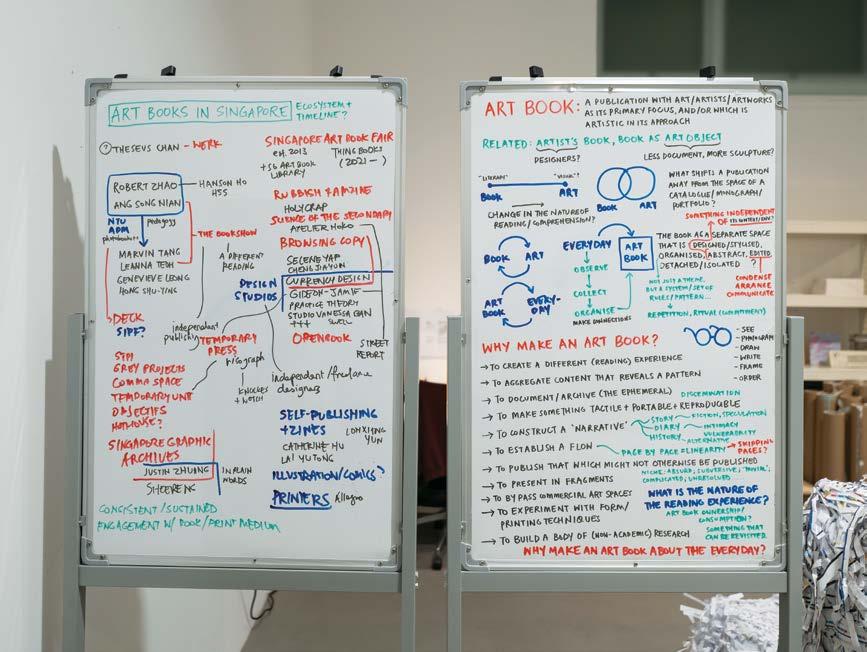 ART BOOKS IN SINGAPORE
ECOSYSTEM +
TIMELINE?
? THESEUS CHAN - WERK
ROBERT ZHAO
ANG SONG NIAN
HANSON HO
H55
NTU
ADM
photobooks
pedagogy
MARVIN TANG
LEANNA TEOH
GENEVIEVE LEONG
HONG SHU-YING
THE BOOKSHOW
A DIFFERENT
READING
DECK
SIPF?
independent
publishing
STPI
GREY PROJECTS
COMMA SPACE
TEMPORARY UNIT
OBJECTIFS
HOTHOUSE?
TEMPORARY
PRESS
risograph
KNUCKLES
+ NOTCH
SINGAPORE GRAPHIC
ARCHIVES
JUSTIN ZHUANG
IN PLAIN
WORDS
SHEERENG
CONSISTENT/SUSTAINED
ENGAGEMENT W/ BOOK/PRINT MEDIUM
SINGAPORE ART BOOK FAIR
est. 2013
+ SG ART BOOK
LIBRARY
THING BOOKS
(2021 - )
RUBBISH FAMZINE
HOLYCRAP
SCIENCE OF THE SECONDARY
ATELIER HOKO
BROWSING COPY
SELENE YAP
CHENG JIA YUN
DESIGN
STUDIOS
CURRENCY DESIGN
GIDEON-JAMIE
PRACTICE THEORY
STUDIO VANESSA BAN
+++
SWELL
OPENBOOK
STREET
REPORT
independent/freelance
designers
SELF-PUBLISHING
+ ZINES
CATHERINE HU
LAI YUTONG
ILLUSTRATION/COMICS?
PRINTERS
Allegro
ART BOOK:
A PUBLICATION WITH ART/ARTISTS/ARTWORKS
AS ITS PRIMARY FOCUS, AND/OR WHICH IS
ARTISTIC IN ITS APPROACH
RELATED: ARTIST'S BOOK, BOOK AS ART OBJECT
DESIGNERS?
LESS DOCUMENT, MORE SCULPTURE?
"LITERARY"
"VISUAL"?
BOOK
ART
BOOK
ART
WHAT SHIFTS A PUBLICATION
AWAY FROM THE SPACE OF A
CATALOGUE/MONOGRAPH/
PORTFOLIO?
CHANGE IN THE NATURE OF
READING/COMPREHENSION?
SOMETHING INDEPENDENT
OF ITS CONTENT/ENV?
BOOK
ART
EVERYDAY
ART
BOOK
OBSERVE
COLLECT
ORGANISE
MAKE CONNECTIONS
THE BOOK AS A SEPARATE SPACE
THAT IS DESIGNED/STYLISED,
ORGANISED, ABSTRACT, EDITED,
DETACHED/ISOLATED
?
CONDENSE
ARRANGE
COMMUNICATE
ART
BOOK
EVERY-
DAY
NOT JUST A THEME,
BUT A SYSTEM/SET OF
RULES/PATTERN...
REPETITION, RITUAL (COMMITMENT)
WHY MAKE AN ART BOOK?
- SEE
- PHOTOGRAPH
- DRAW
- WRITE
- FRAME
- ORDER
→ TO CREATE A DIFFERENT (READING) EXPERIENCE
→ TO AGGREGATE CONTENT THAT REVEALS A PATTERN
→ TO DOCUMENT/ARCHIVE (THE EPHEMERAL)
DISSEMINATION
→ TO MAKE SOMETHING TACTILE + PORTABLE + REPRODUCIBLE
→ TO CONSTRUCT A 'NARRATIVE'
STORY - FICTION, SPECULATION
DIARY - INTIMACY
VULNERABILITY
HISTORY - ALTERNATIVE
→ TO ESTABLISH A FLOW - PAGE BY PAGE = LINEARITY → SKIPPING
PAGES?
→ TO PUBLISH THAT WHICH MIGHT NOT OTHERWISE BE PUBLISHED
NICHE; ABSURD; SUBVERSIVE; "TRIVIAL";
COMPLICATED, UNRESOLVED
→ TO PRESENT IN FRAGMENTS
→ TO BYPASS COMMERCIAL ART SPACES
→ TO EXPERIMENT WITH FORM/
PRINTING TECHNIQUES
→ TO BUILD A BODY OF (NON-ACADEMIC) RESEARCH
WHAT IS THE NATURE OF
THE READING EXPERIENCE?
ART BOOK OWNERSHIP/
CONSUMPTION?
SOMETHING THAT
CAN BE REVISITED
WHY MAKE AN ART BOOK ABOUT THE EVERYDAY?